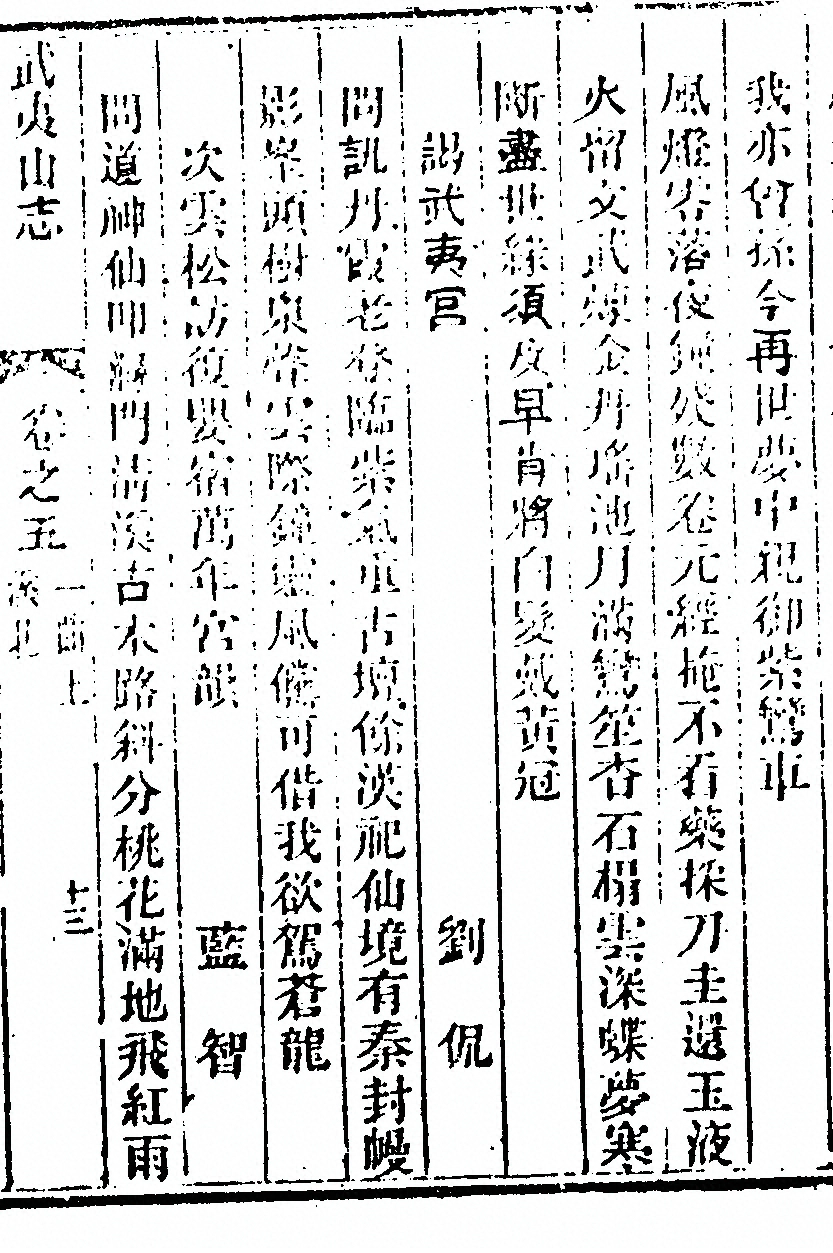 我亦曾孫今再世夢中親御紫鸞車
風燈零落夜鐘殘數卷元經掩不看藥採刀圭還玉液
火留文武煉金丹瑤池月滿鸞笙杳石榻雲深蝶夢寒
斷盡世緣須及早肯將白髮戴黃冠
謁武夷宮
劉侃
問訊丹霞老登臨紫氣重古壇餘漢祀仙境有秦封幔
影峯頭樹泉聲雲際鐘靈風儻可借我欲駕蒼龍
次雲松訪復嬰宿萬年宮韻
藍智
問道神仙叩洞門清溪古木路斜分桃花滿地飛紅雨
武夷山志
卷之五
一曲上
溪北
十三